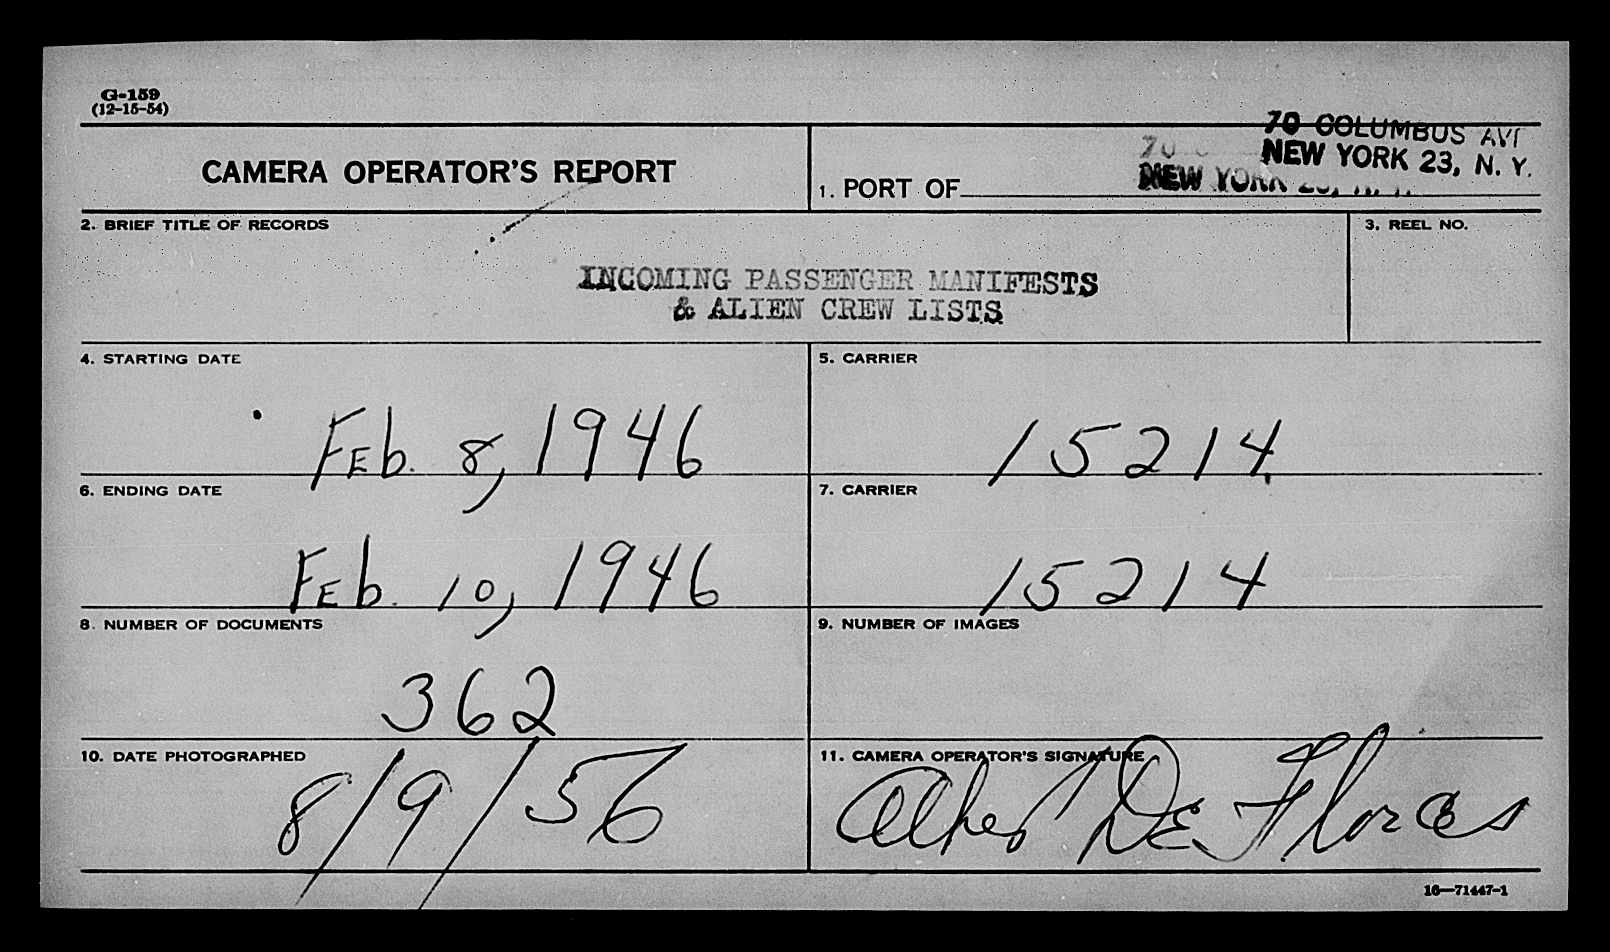 G-159
(12-15-54)
CAMERA OPERATOR'S REPORT
1. PORT OF
70 COLUMBUS AVE
NEW YORK 23, N. Y.
NEW YORK 23, N. Y.
2. BRIEF TITLE OF RECORDS
INCOMING PASSENGER MANIFESTS
& ALIEN CREW LISTS
3. REEL NO.
4. STARTING DATE
Feb. 8, 1946
5. CARRIER
15214
6. ENDING DATE
Feb. 10, 1946
7. CARRIER
15214
8. NUMBER OF DOCUMENTS
362
9. NUMBER OF IMAGES
10. DATE PHOTOGRAPHED
8/9/56
11. CAMERA OPERATOR'S SIGNATURE
De
16—71447-1